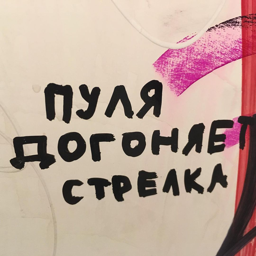 ПУЛЯ
ДОГОНЯЕТ
СТРЕЛКА